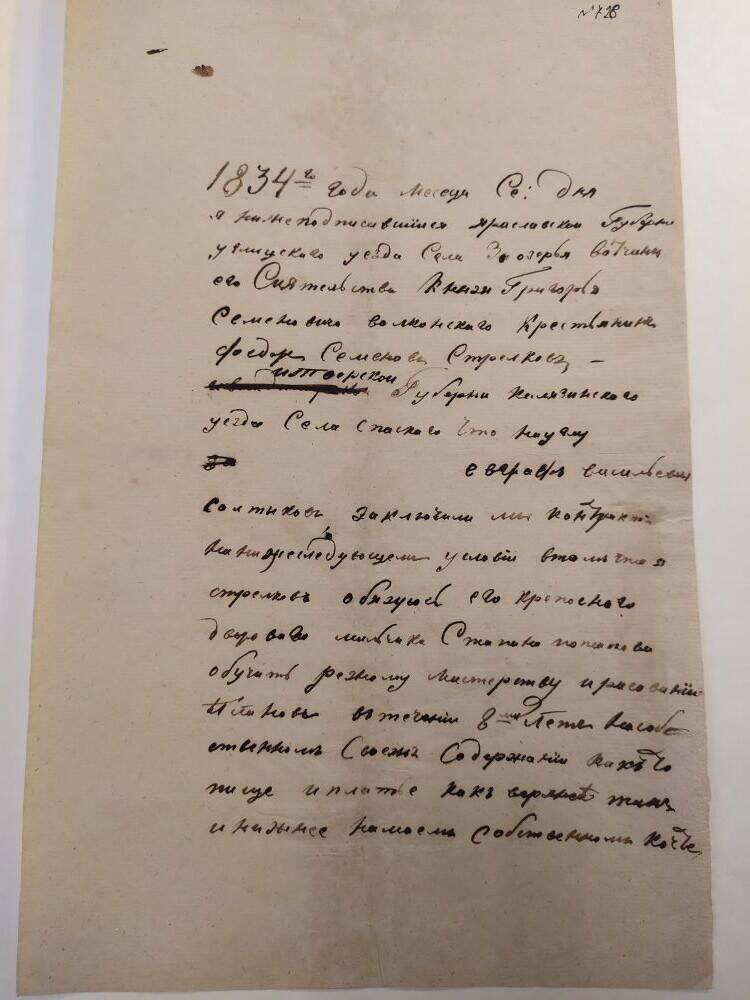 № 728
1834го года месеца Се: дня
я нижеподписавшийся ярославской Губерни
углицкого уезда Села Заозерья вотчины
его Сиятельства Князя Григорья
Семеновича волконского Крестьянинъ
федоръ Семеновъ Стрелковъ, –
итверской
Губерни Калязинского
уезда Села спаского что наугму
за евграфъ васильевич
солтыковъ, заключили мы контрактъ
нанижеследующемъ условіи втомъ что я
стрелковъ обязуюсь его крепосного
дворового мальчика Степана потапова
обучать резному мастерству и рисованіи
Плановъ втечении 8ми Летъ насобс
ственномъ Своемъ Содержаніи какъ то
пище и платье какъ верхнее такъ
и нижнее намоемъ собственномъ коште,